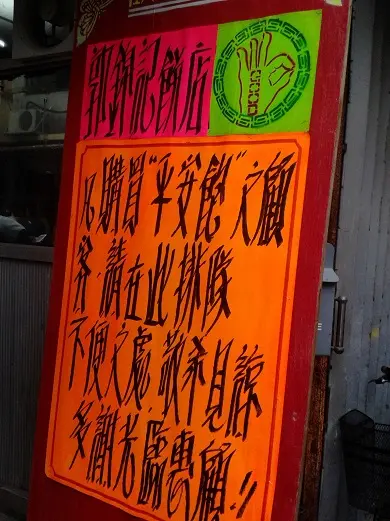 郭錦記餅店
凡購買"平安飽"之顧
客，請在此排隊
不便之處 敬希見諒
多謝光臨惠顧!!